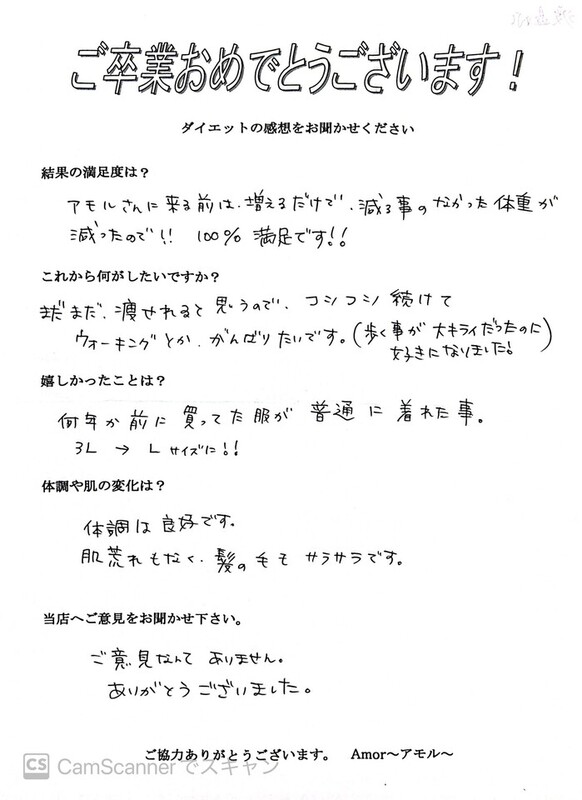 ご卒業おめでとうございます!
ダイエットの感想をお聞かせください
結果の満足度は?
アモルさんに来る前は、増えるだけで、減る事のなかった体重が
減ったので!! 100% 満足です!!
これから何がしたいですか?
まだまだ、痩せれると思うので、コツコツ続けて
ウォーキングとか、がんばりたいです。(歩く事が大キライだったのに
好きになりました!)
嬉しかったことは?
何年か前に買ってた服が普通に着れた事。
3L → L サイズに!!
体調や肌の変化は?
体調は良好です。
肌荒れもなく、髪の毛もサラサラです。
当店へご意見をお聞かせ下さい。
ご意見なんてありません。
ありがとうございました。
ご協力ありがとうございます。 Amor~アモル~
CS CamScannerでスキャン